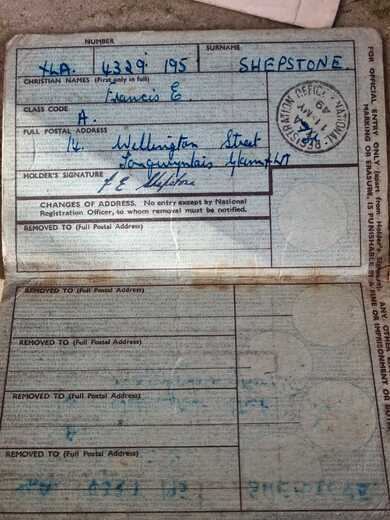 NUMBER SURNAME
XLA. 4329 195 SHEPSTONE.
CHRISTIAN NAMES (First only in full)
Francis E.
CLASS CODE
A.
FULL POSTAL ADDRESS
14 Wellington Street
Tongwynlais
HOLDER'S SIGNATURE F E Shepstone
CHANGES OF ADDRESS. No entry except by National
Registration Officer, to whom removal must be notified.
REMOVED TO (Full Postal Address)
REMOVED TO (Full Postal Address)
REMOVED TO (Full Postal Address)
REMOVED TO (Full Postal Address)
REMOVED TO (Full Postal Address)
NATIONAL REGISTRATION OFFICE
MY
49
FOR OFFICIAL ENTRY ONLY (apart from Holder's Signature). ANY OTHER
MARKING OR ERASURE, IS PUNISHABLE BY A FINE OR IMPRISONMENT OR